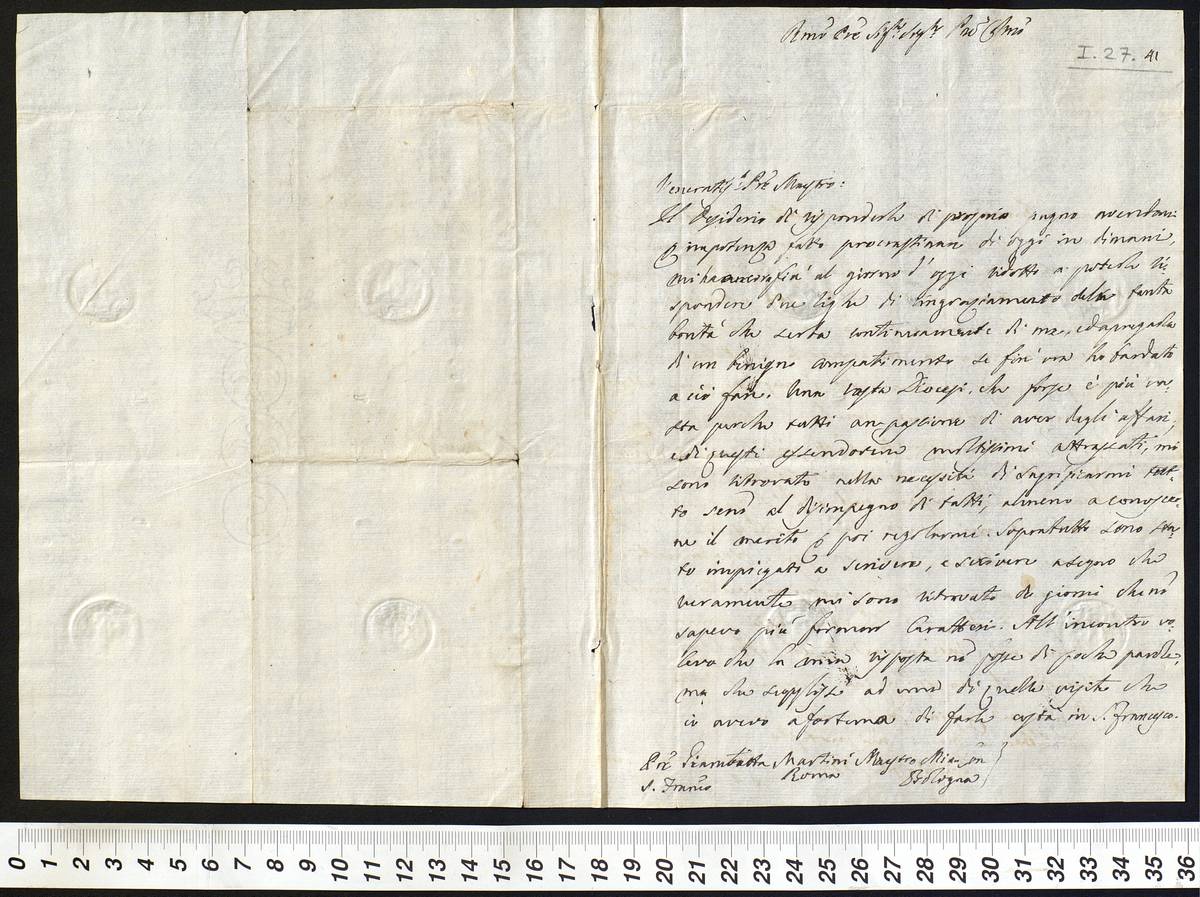 Rmõ Prẽ Sigr. Sigr. Prõn Colmõ
I. 27. 41
Veneratisso. Prẽ Maestro:
Il desiderio di risponderle di proprio pugno avendomi
impotenza fatto procrastinare di oggi in dimani,
mi ha fin' al giorno d'oggi ridotto a poterle ri-
spondere due righe di ringraziamento della tanta
bontà che serba continuamente di me, ed a pregarla
di un benigno compatimento se fin' ora ho tardato
a ciò fare. Una vasta Diocesi, che forse è più va-
sta perche tutti an passione di aver degli affari,
e di questi essendovene moltissimi attrassati, mi
sono ritrovato nella necessità di sagrificarmi tut-
to al disimpegno di tutti, almeno a conosce-
re il merito p poi regolarmi. Sopratutto sono sta-
to impiegato a scrivere, e scrivere a segno che
veramente mi sono ritrovato de giorni che nõ
sapevo più formar Caratteri. All' incontro vo-
levo che la mia risposta nõ fosse di poche parole,
ma che supplisse ad una di quelle visite che
io avevo a fortuna di farle costà in S. Francesco.
Prẽ Giambatta Martini Maestro Min: Con
S. Franco Roma Bologna